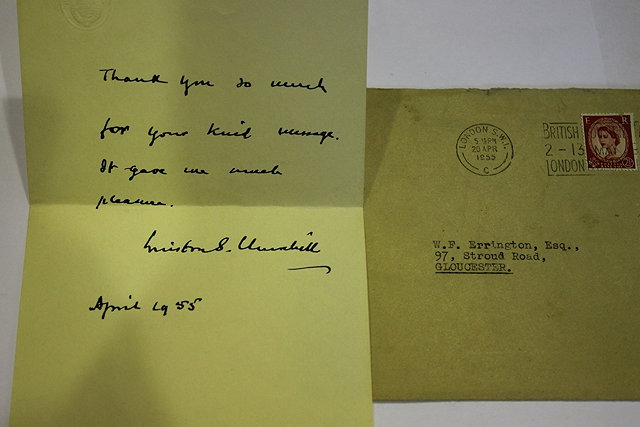 Thank you so much
for your kind message.
It gave me much
pleasure.
Winston S. Churchill
April 1955
LONDON S.W.1.
20 APR
1955
C
BRITISH
2 - 13 MAY
LONDON
E R
W.F. Errington, Esq.,
97, Stroud Road,
GLOUCESTER.